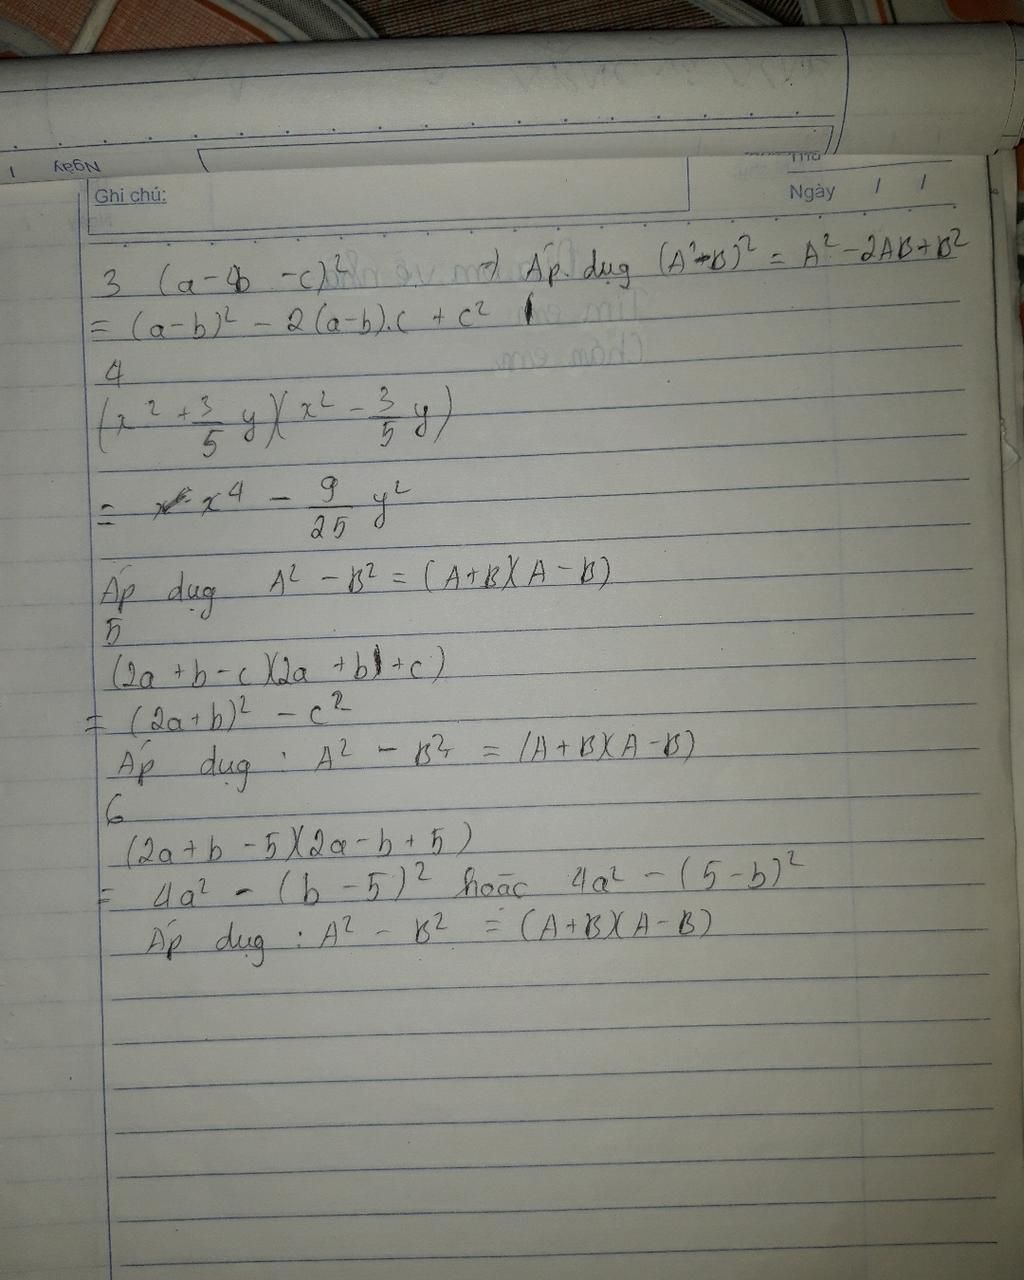 Ngày /
Ghi chú:
Ngày / /
3 (a-b-c)² => Áp dụg (A-B)² = A² - 2AB + B²
= (a-b)² - 2(a-b).c + c²
4
(x² + 3/5 y)(x² - 3/5 y)
= x⁴ - 9/25 y²
Áp dụg A² - B² = (A+B)(A-B)
5
(2a+b-c)(2a+b+c)
= (2a+b)² - c²
Áp dụg : A² - B² = (A+B)(A-B)
6
(2a+b-5)(2a-b+5)
= 4a² - (b-5)² hoặc 4a² - (5-b)²
Áp dụg : A² - B² = (A+B)(A-B)